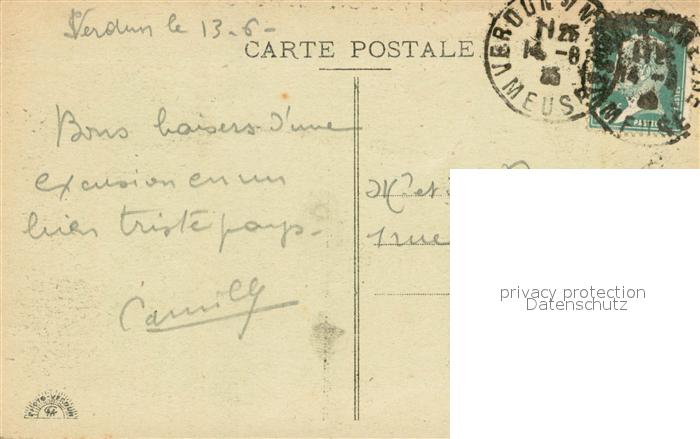 Verdun le 13-6-
CARTE POSTALE
VERDUN S/M
11 25
14 -6
MEUSE
Bons baisers d'une
excursion en un
bien triste pays.
Camille
Mr et
1 rue
privacy protection
Datenschutz
PHOTO-VERDUN